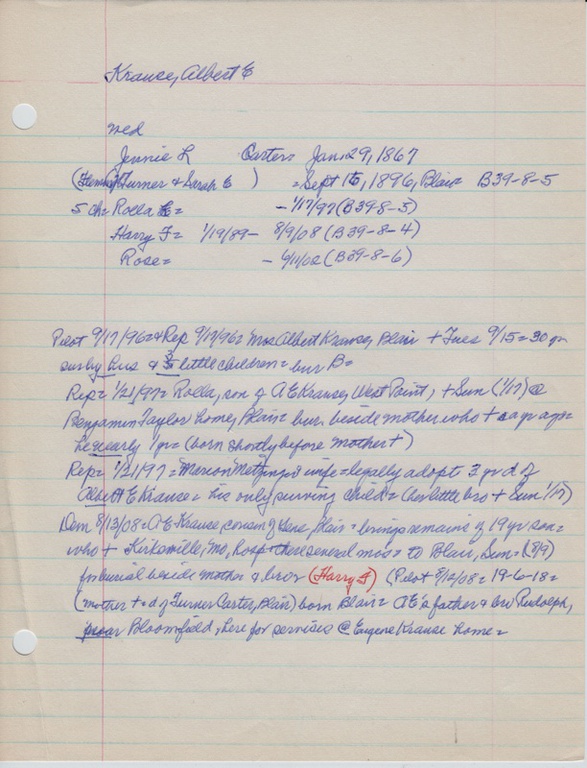 Krause, Albert E
wed
Jennie L Carter= Jan 29, 1867
(Turner & Sarah E ) = Sept 15, 1896, Blair= B39-8-5
5 ch= Rolla E= - 1/17/97 (B39-8-5)
Harry F= 1/19/89- 8/9/08 (B39-8-4)
Rose= - 6/11/02 (B39-8-6)
Pilot 9/17/96= & Rep 9/17/96= Mrs Albert Krause, Blair + Tues 9/15= 30 yr
surby hus & 3 little children= bur B=
Rep= 1/21/97= Rolla, son of A E Krause, West Point, + Sun (1/17) @
Benjamin Taylor home, Blair= bur beside mother who + a yr ago=
he nearly 1 yr= (born shortly before mother +)
Rep= 1/21/97= Marion & wife= legally adopt 3 yr d of
Albert E Krause= his only surving child= Her little bro + Sun 1/17)
Dem 8/13/08= A E Krause, Blair= brings remains of 19 yr son=
who + Kirksville, Mo, hosp there several mos= to Blair, Sun= (8/9)
for burial beside mother & bros (Harry F) (Pilot 8/12/08= 19-6-18=
(mother + d of Turner Carter, Blair) born Blair= AE's father & bro Rudolph,
near Bloomfield, here for services @ Eugene Krause home=